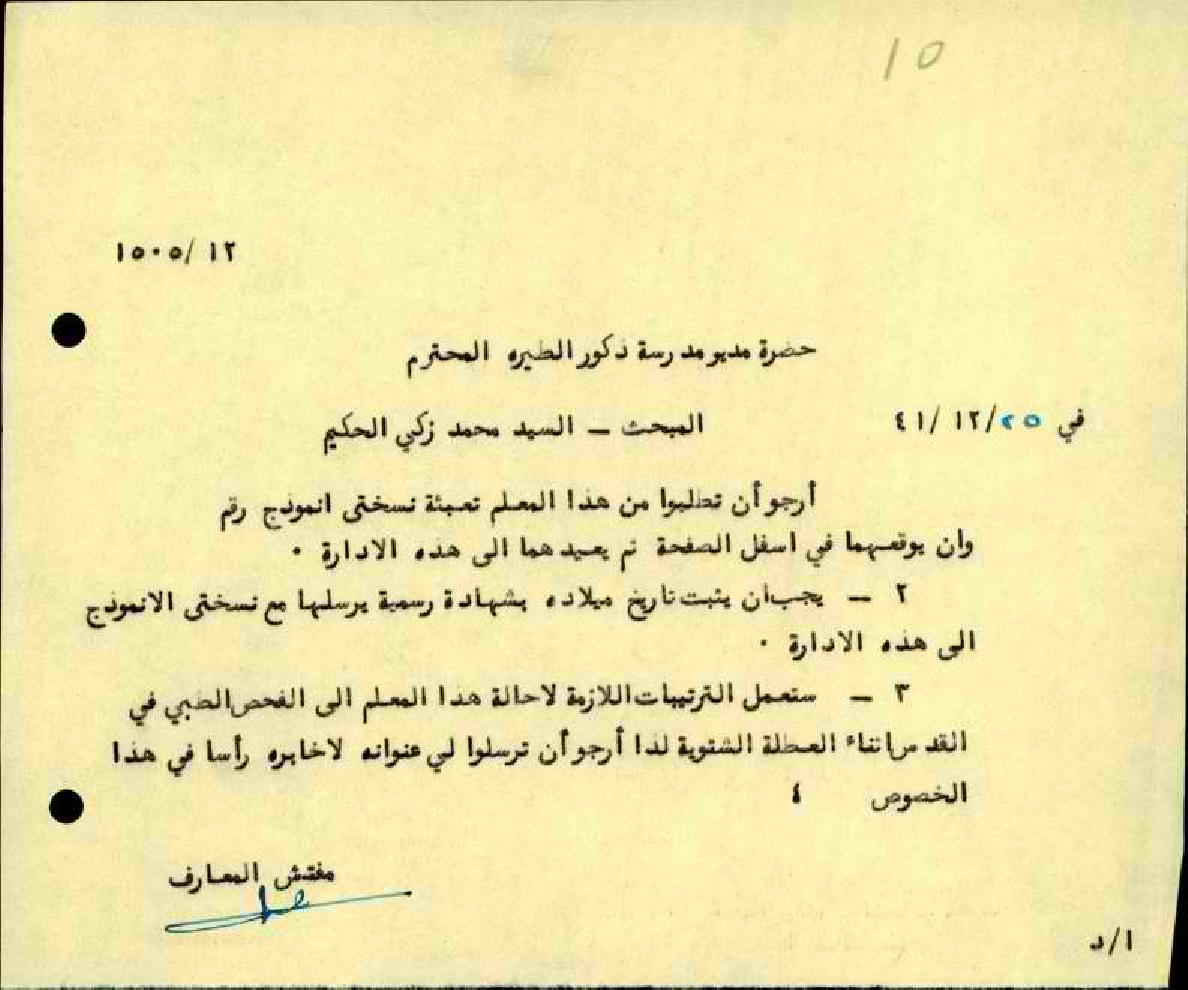 ١٥
١٥٠٥/ ١٢
حضرة مدير مدرسة ذكور الطيره المحترم
في ٢٥/ ١٢/ ٤١
المبحث ـ السيد محمد زكي الحكيم
أرجو أن تطلبوا من هذا المعلم تعبئة نسختى انموذج رقم
وان يوقعهما في اسفل الصفحة ثم يعيدهما الى هذه الادارة ٠
٢ ـ يجب ان يثبت تاريخ ميلاده بشهادة رسمية يرسلها مع نسختى الانموذج
الى هذه الادارة ٠
٣ ـ سنعمل الترتيبات اللازمة لاحالة هذا المعلم الى الفحص الطبي في
القدس اثناء العطلة الشتوية لذا أرجو أن ترسلوا لي عنوانه لاخابره رأسا في هذا
الخصوص ٤
مفتش المعارف
ا/د